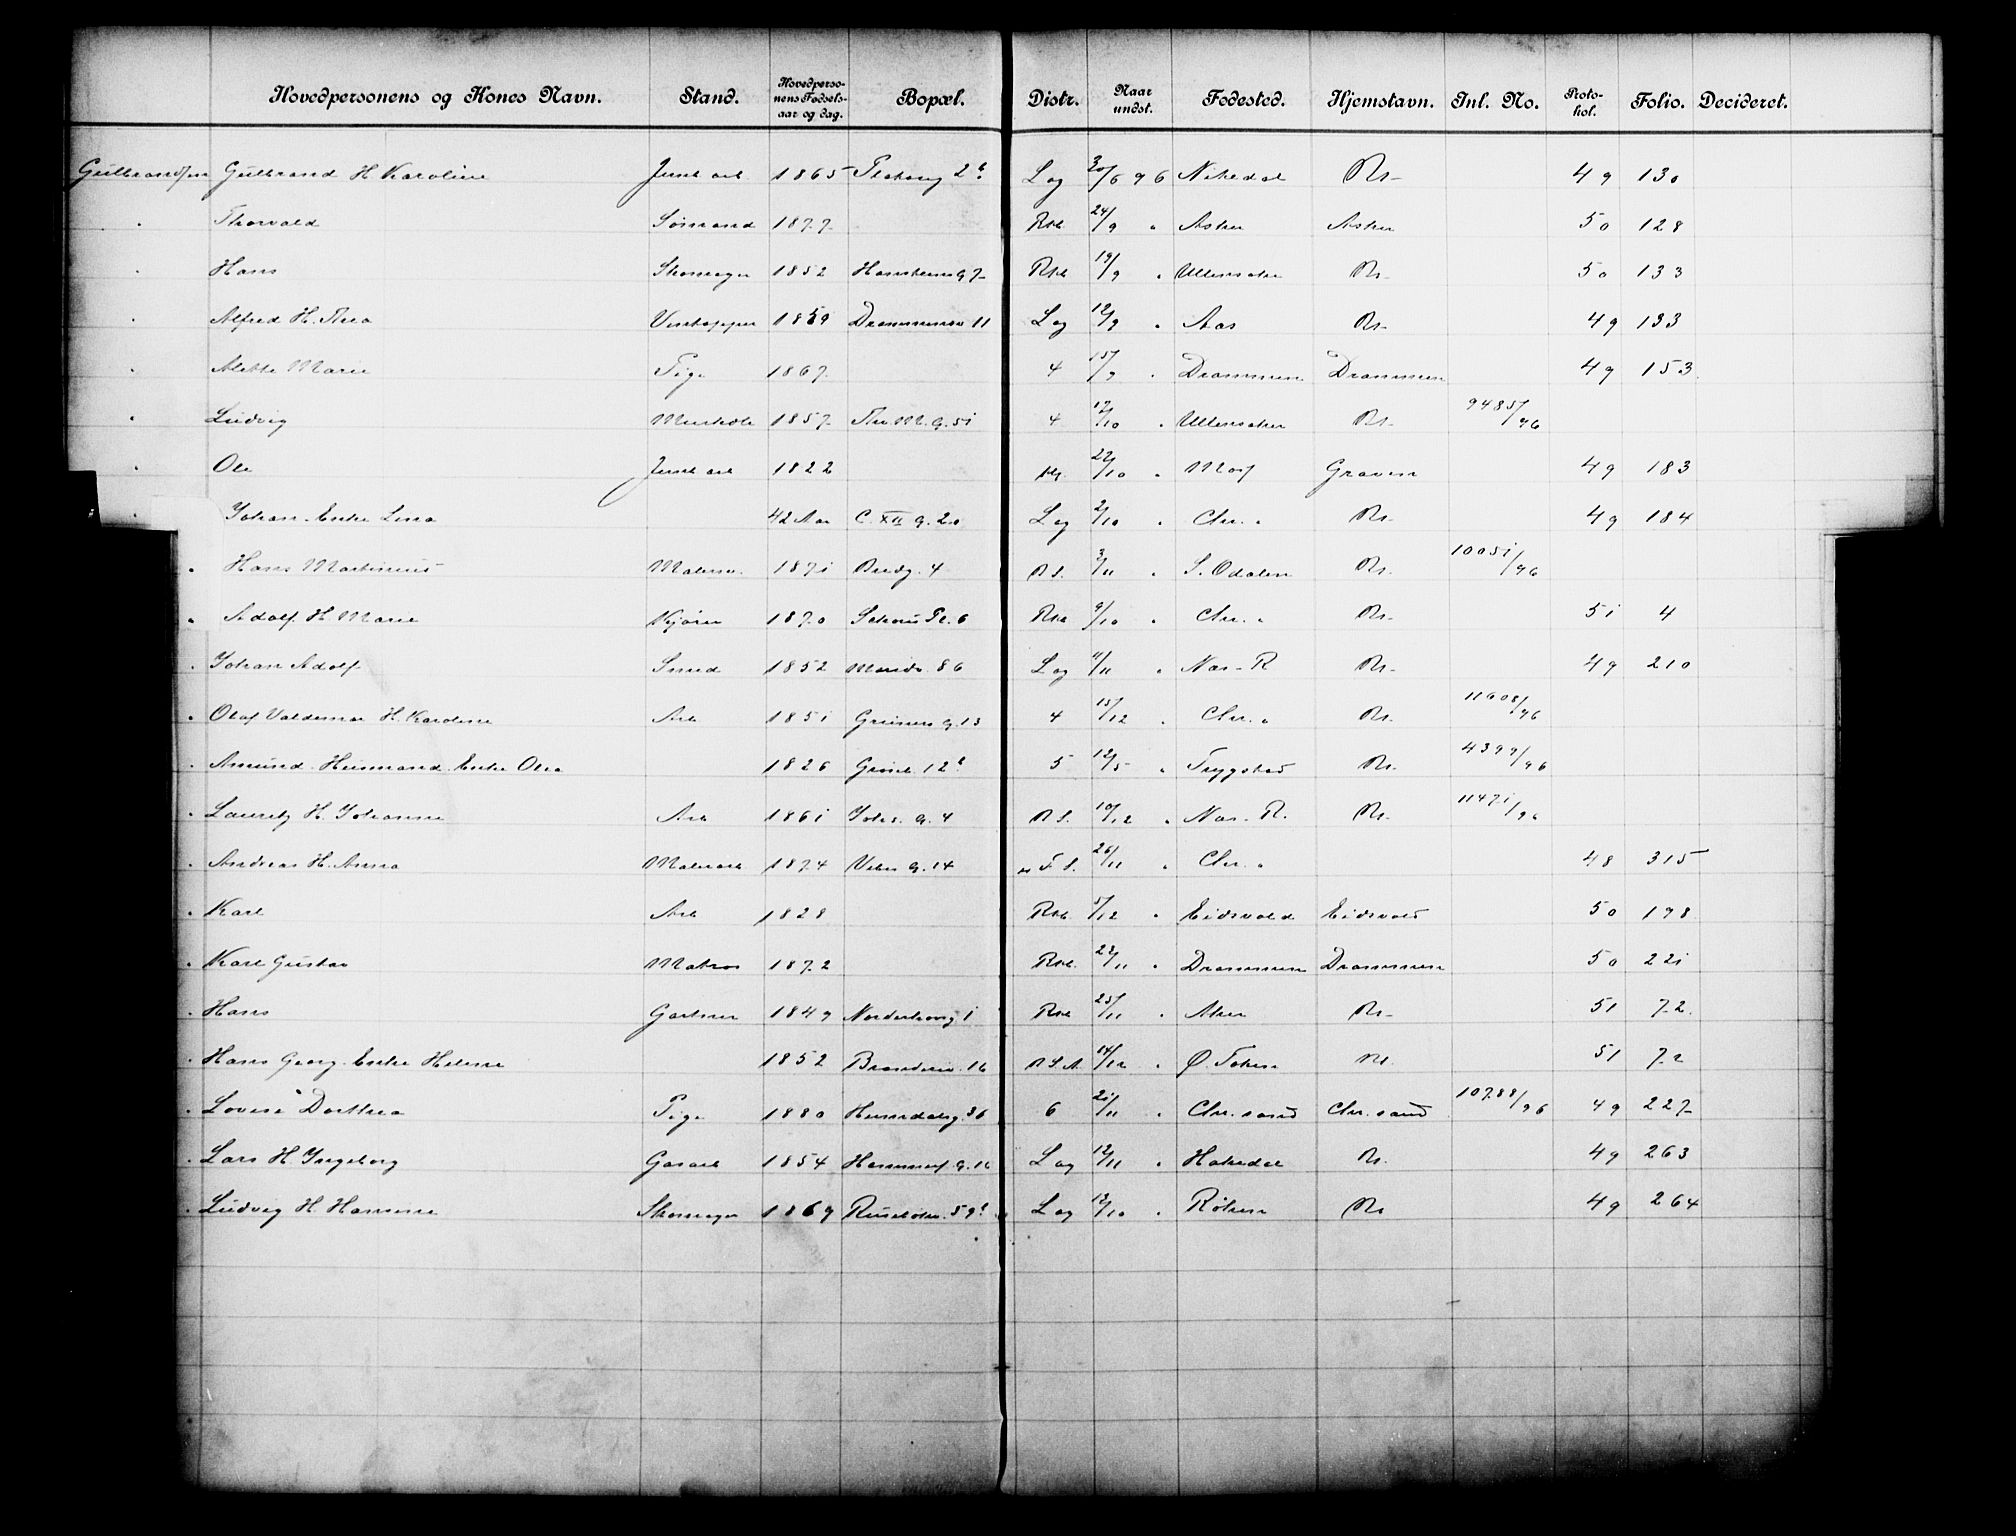 Hovedpersonens og Kones Navn. Stand. Hovedpersonens Fødselsaar og dag. Bopæl. Distr. Naar undst. Fødested. Hjemstavn. Inl. No. Protokol. Folio. Decideret.
Gulbrandsen Gulbrand H Karoline 1865 2b Lag 30/6 96 Nitedal Kr 49 130
" Thorvald Sømand 1877 Rst 24/9 " Asker Asker 50 128
" Hans Skomager 1852 Rst 19/9 " Ullensaker Kr 50 133
" Alfred H. Thea 1859 Drammensv 11 Lag 12/9 " Aas Kr 49 133
" Alette Marie Pige 1867 4 15/9 " Drammen Drammen 49 153
" Ludvig 1857 Thv. M. G. 51 4 17/10 " Ullensaker Kr 9485/96
" Ole Jernb arb 1822 22/10 " Graven 49 183
" Johan Enke Lina 42 Aar C. XII G. 20 Lag 2/10 " Chr. " Kr 49 184
" Hans Martinius Malersv. 1871 Bredg. 4 R S. 3/11 " S. Odalen Kr. 10051/96
" Adolf H Marie Kjører 1870 Schous Pl. 6 Rst 9/10 " Chr. " Kr 51 4
" Johan Adolf Smed 1852 Marids. 86 Lag 11/11 " Nes - R Kr 49 210
" Olaf Valdemar H. Karoline Arb 1851 Grüners G. 13 4 15/12 " Chr. " Kr. 11608/96
" Amund Husmand Enke Olea 1826 Grønl. 12b 5 12/5 " Trygstad Kr. 4399/96
" Lauritz H. Johanne Arb 1861 Johs. G. 4 R S. 10/12 " Nes - R. Kr. 11471/96
" Andreas H. Anna Malerarb 1874 Vibes G. 14 F S. 26/11 " Chr. " 48 315
" Karl Arb 1828 Rst 5/12 " Eidsvold Eidsvold 50 198
" Karl Gustav Matros 1872 Rst. 22/11 " Drammen Drammen 50 221
" Hans Gartner 1849 Nordahlsg 1 Rst 25/11 " Aker Kr 51 72
" Hans Georg Enke Helene 1852 16 R S. A. 14/12 " Ø. Toten Kr. 51 72
" Lovise Dorthea Pige 1880 Heimdalsg. 36 6 21/11 " Chr. sand Chr. sand 10788/96 49 227
" Lars H Ingeborg Gasarb 1854 Hammerf. G. 16 Lag 12/11 " Hakedal Kr. 49 263
" Ludvig H Hansine Skomager 1869 Ruseløkv. 59b Lag 12/10 " Røken Kr 49 264